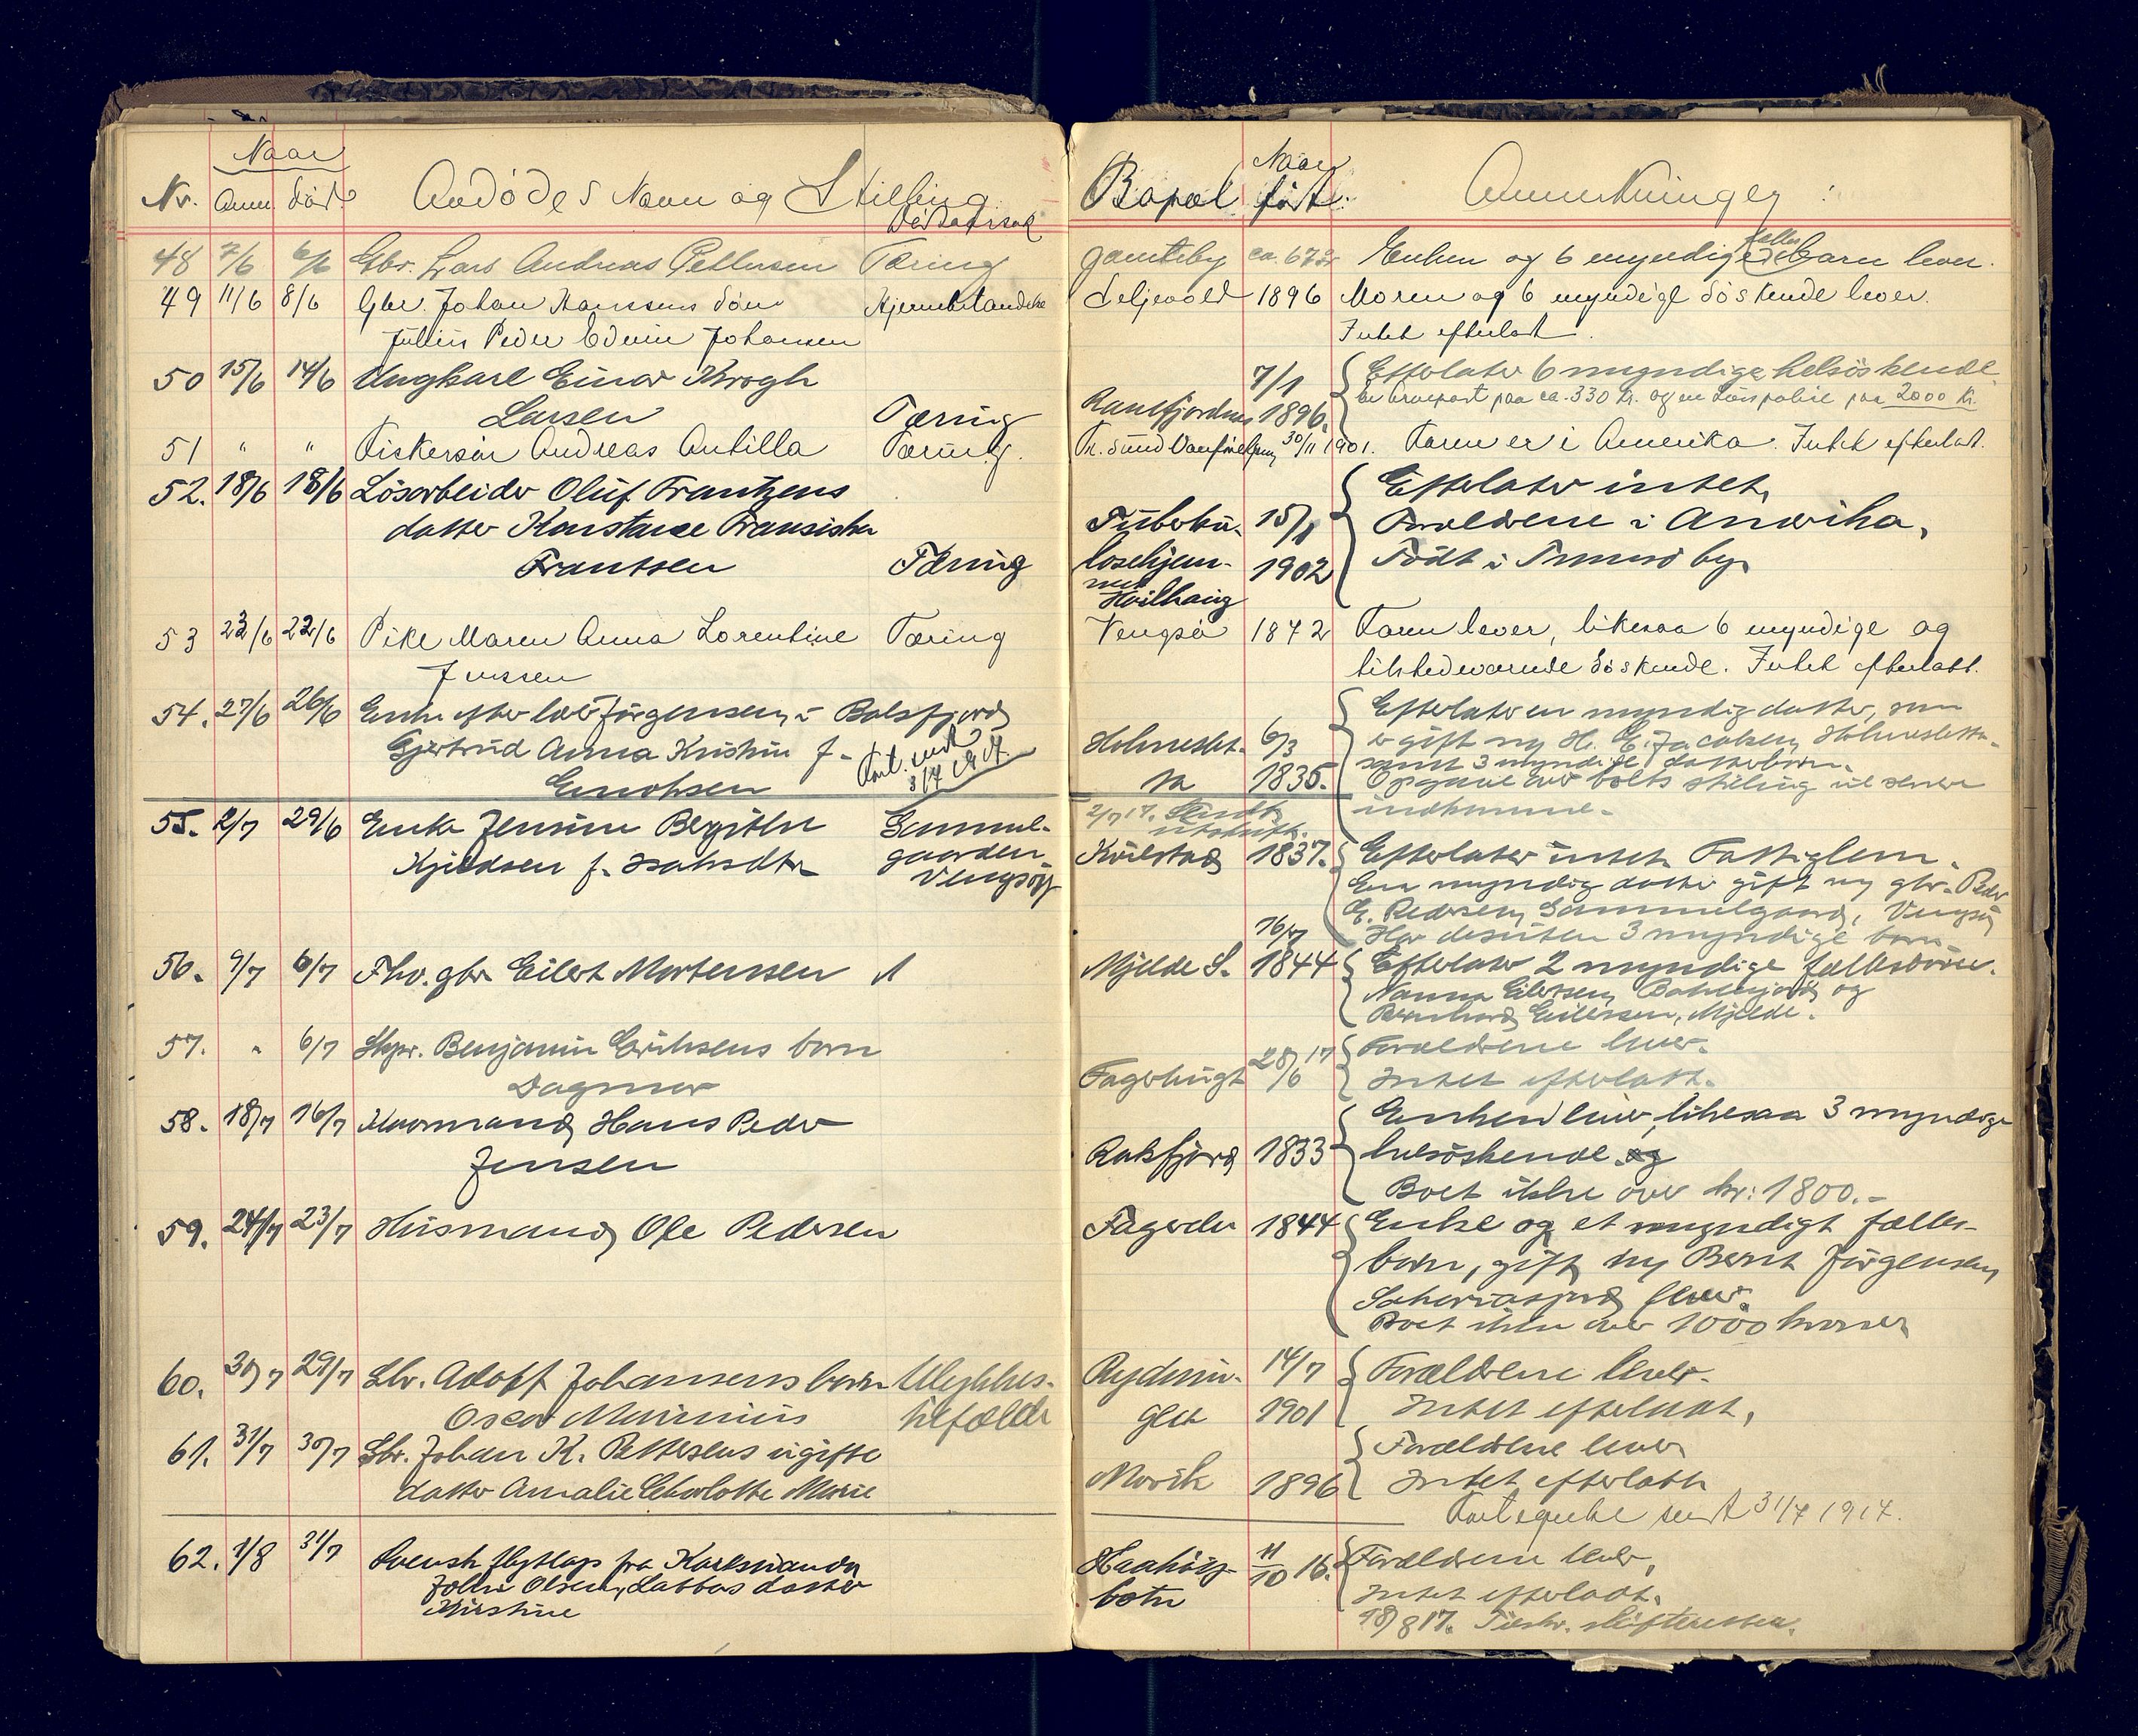 Naar
Nr. Anm. död. Avdödes Navn og Stilling
Dödsaarsak
48 7/6 6/6 Gbr. Lars Andreas Pettersen Tæring
49 11/6 8/6 Gbr. Johan Hanssens sön Hjernebetændelse
Julius Peder Edvin Johansen
50 15/6 14/6 Ungkarl Einar Krogh
Larsen Tæring
51 " " Fiskersön Andreas Antilla Tæring.
52. 18/6 18/6 Lösarbeider Oluf Frantzens
datter Konstance Fransiska
Frantsen Tæring
53 23/6 22/6 Pike Maren Anna Lorentine Tæring
Jenssen
54. 27/6 26/6 Enke efter Jörgensen, i Balsfjord
Gjertrud Anna Kristin f.
Enoksen
Fort. sendt
3/7 1917.
55. 2/7 29/6 Enke Jensine Bergithe Gammel-
Kjeldsen f. Isaksdtr gaarden
Vengsöy
56. 9/7 6/7 Fhv. gbr. Eilert Mortensen
57. " 6/7 Skpr. Benjamin Eriksens barn
Dagmar
58. 18/7 16/7 Kaarmand Hans Peder
Jensen
59. 24/7 23/7 Husmand Ole Pedersen
60. 30/7 29/7 Lbr. Adolf Johansens barn Ulykkes-
Oscar Marinius tilfælde
61. 31/7 30/7 Lbr. Johan K. Pettersens ugifte
datter Amalie Charlotte Marie
62. 1/8 31/7 Svensk flytlap fra Karesuando
Olsen Labbas datter
Kirstine
Naar
Bopæl född. Anmerkninger:
ca. 67 aar Enken og 6 myndige fælles barn lever.
Seljevold 1896 Moren og 6 myndige söskende lever.
Intet efterlatt.
7/1 Efterlater 6 myndige helsöskende
Ramfjordnes 1896. en arvepart paa ca. 330 kr. og en Livspolise paa 2000 kr.
Tr.sund Vanförehjem 30/11 1901. Faren er i Amerika. Intet efterlatt.
Efterlater intet,
Tuberku- 15/1 Forældrene i Amerika,
losehjem- 1902 Födt i Tromsö by,
met
Hvilhaug
Vengsöi 1872 Faren lever, likesaa 6 myndige og
tilstedeværende söskende. Intet efterlatt.
Efterlater en myndig datter, som
Holmeslet- 6/3 er gift m H. E. Jacobsen, Holmesletta
ta 1835. samt 3 myndige datterbörn.
Opgave over boets stilling vil senere
indkomme.
2/7 17. Sendt
utskrift.
Kvilstad 1837. Efterlater intet. Fattiglem.
En myndig datter gift m gbr. Peder
E. Pedersen, Gammelgaard, Vengsöy
Har desuten 3 myndige barn
16/7
Mjelde S. 1844 Efterlater 2 myndige fellesbörn.
Nanna Eilertsen, og
Bernhard Eilertsen, Mjelde.
Forældrene lever.
Fagerhugt 28/6 17 Intet efterlatt.
Enken lever, likesaa 3 myndige
Raksfjord 1833 helsöskende og
Boet ikke over kr: 1800.-
Fagerli 1844 Enke og et myndigt fælles-
barn, gift m Bernt Jörgensen
Sakariasjord lever.
Boet ikke over 1000 kroner
Rydnin- 14/7 Forældrene lever.
gen 1901 Intet efterlatt,
Forældrene lever
Mevik 1896 Intet efterlatt
Fortegnelse sendt 31/7 1917.
11/10 16. Forældrene lever,
botn Intet efterlatt.
18/8 17. Tilskr. skifteretten.